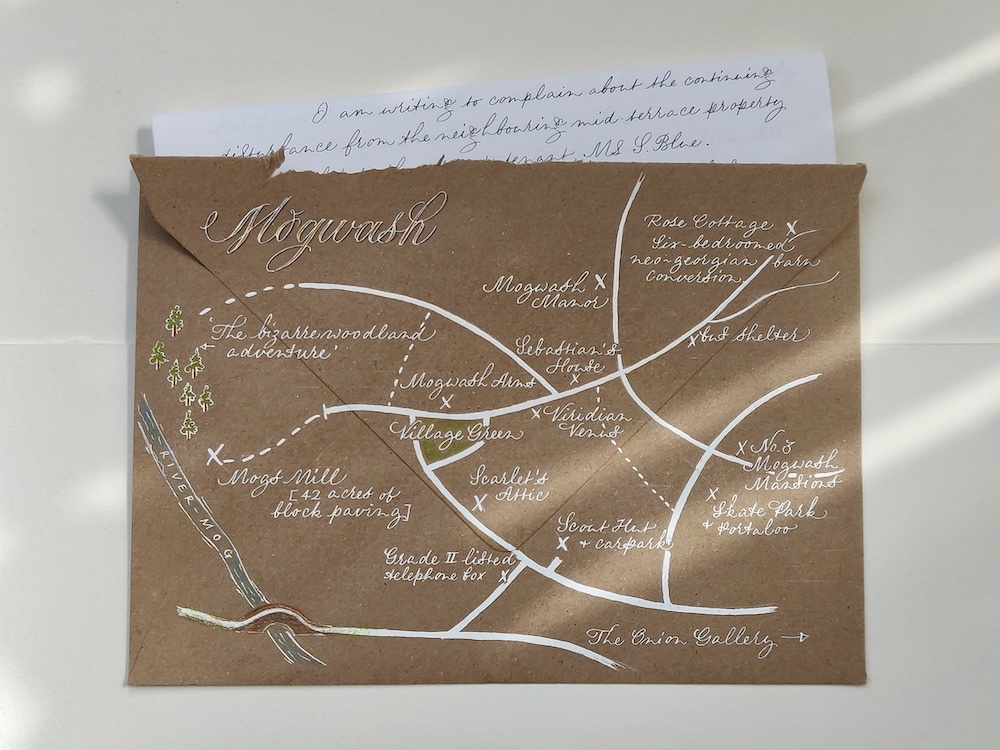 I am writing to complain about the continuing
disturbance from the neighbouring mid-terrace property
tenant, MS S. Blue.
Mogwash
Rose Cottage
Six-bedroomed
neo-georgian barn
conversion
Mogwash
Manor
'The bizarre woodland
adventure'
bus shelter
Sebastian's
House
Mogwash Arms
Viridian
Venus
Village Green
No. 3
Mogwash
Mansions
Mogs Mill
[42 acres of
block paving]
Scarlet's
Attic
Skate Park
+ Portaloo
RIVER-MOG
Scout Hut
+ carpark
Grade II listed
telephone box
The Onion Gallery →